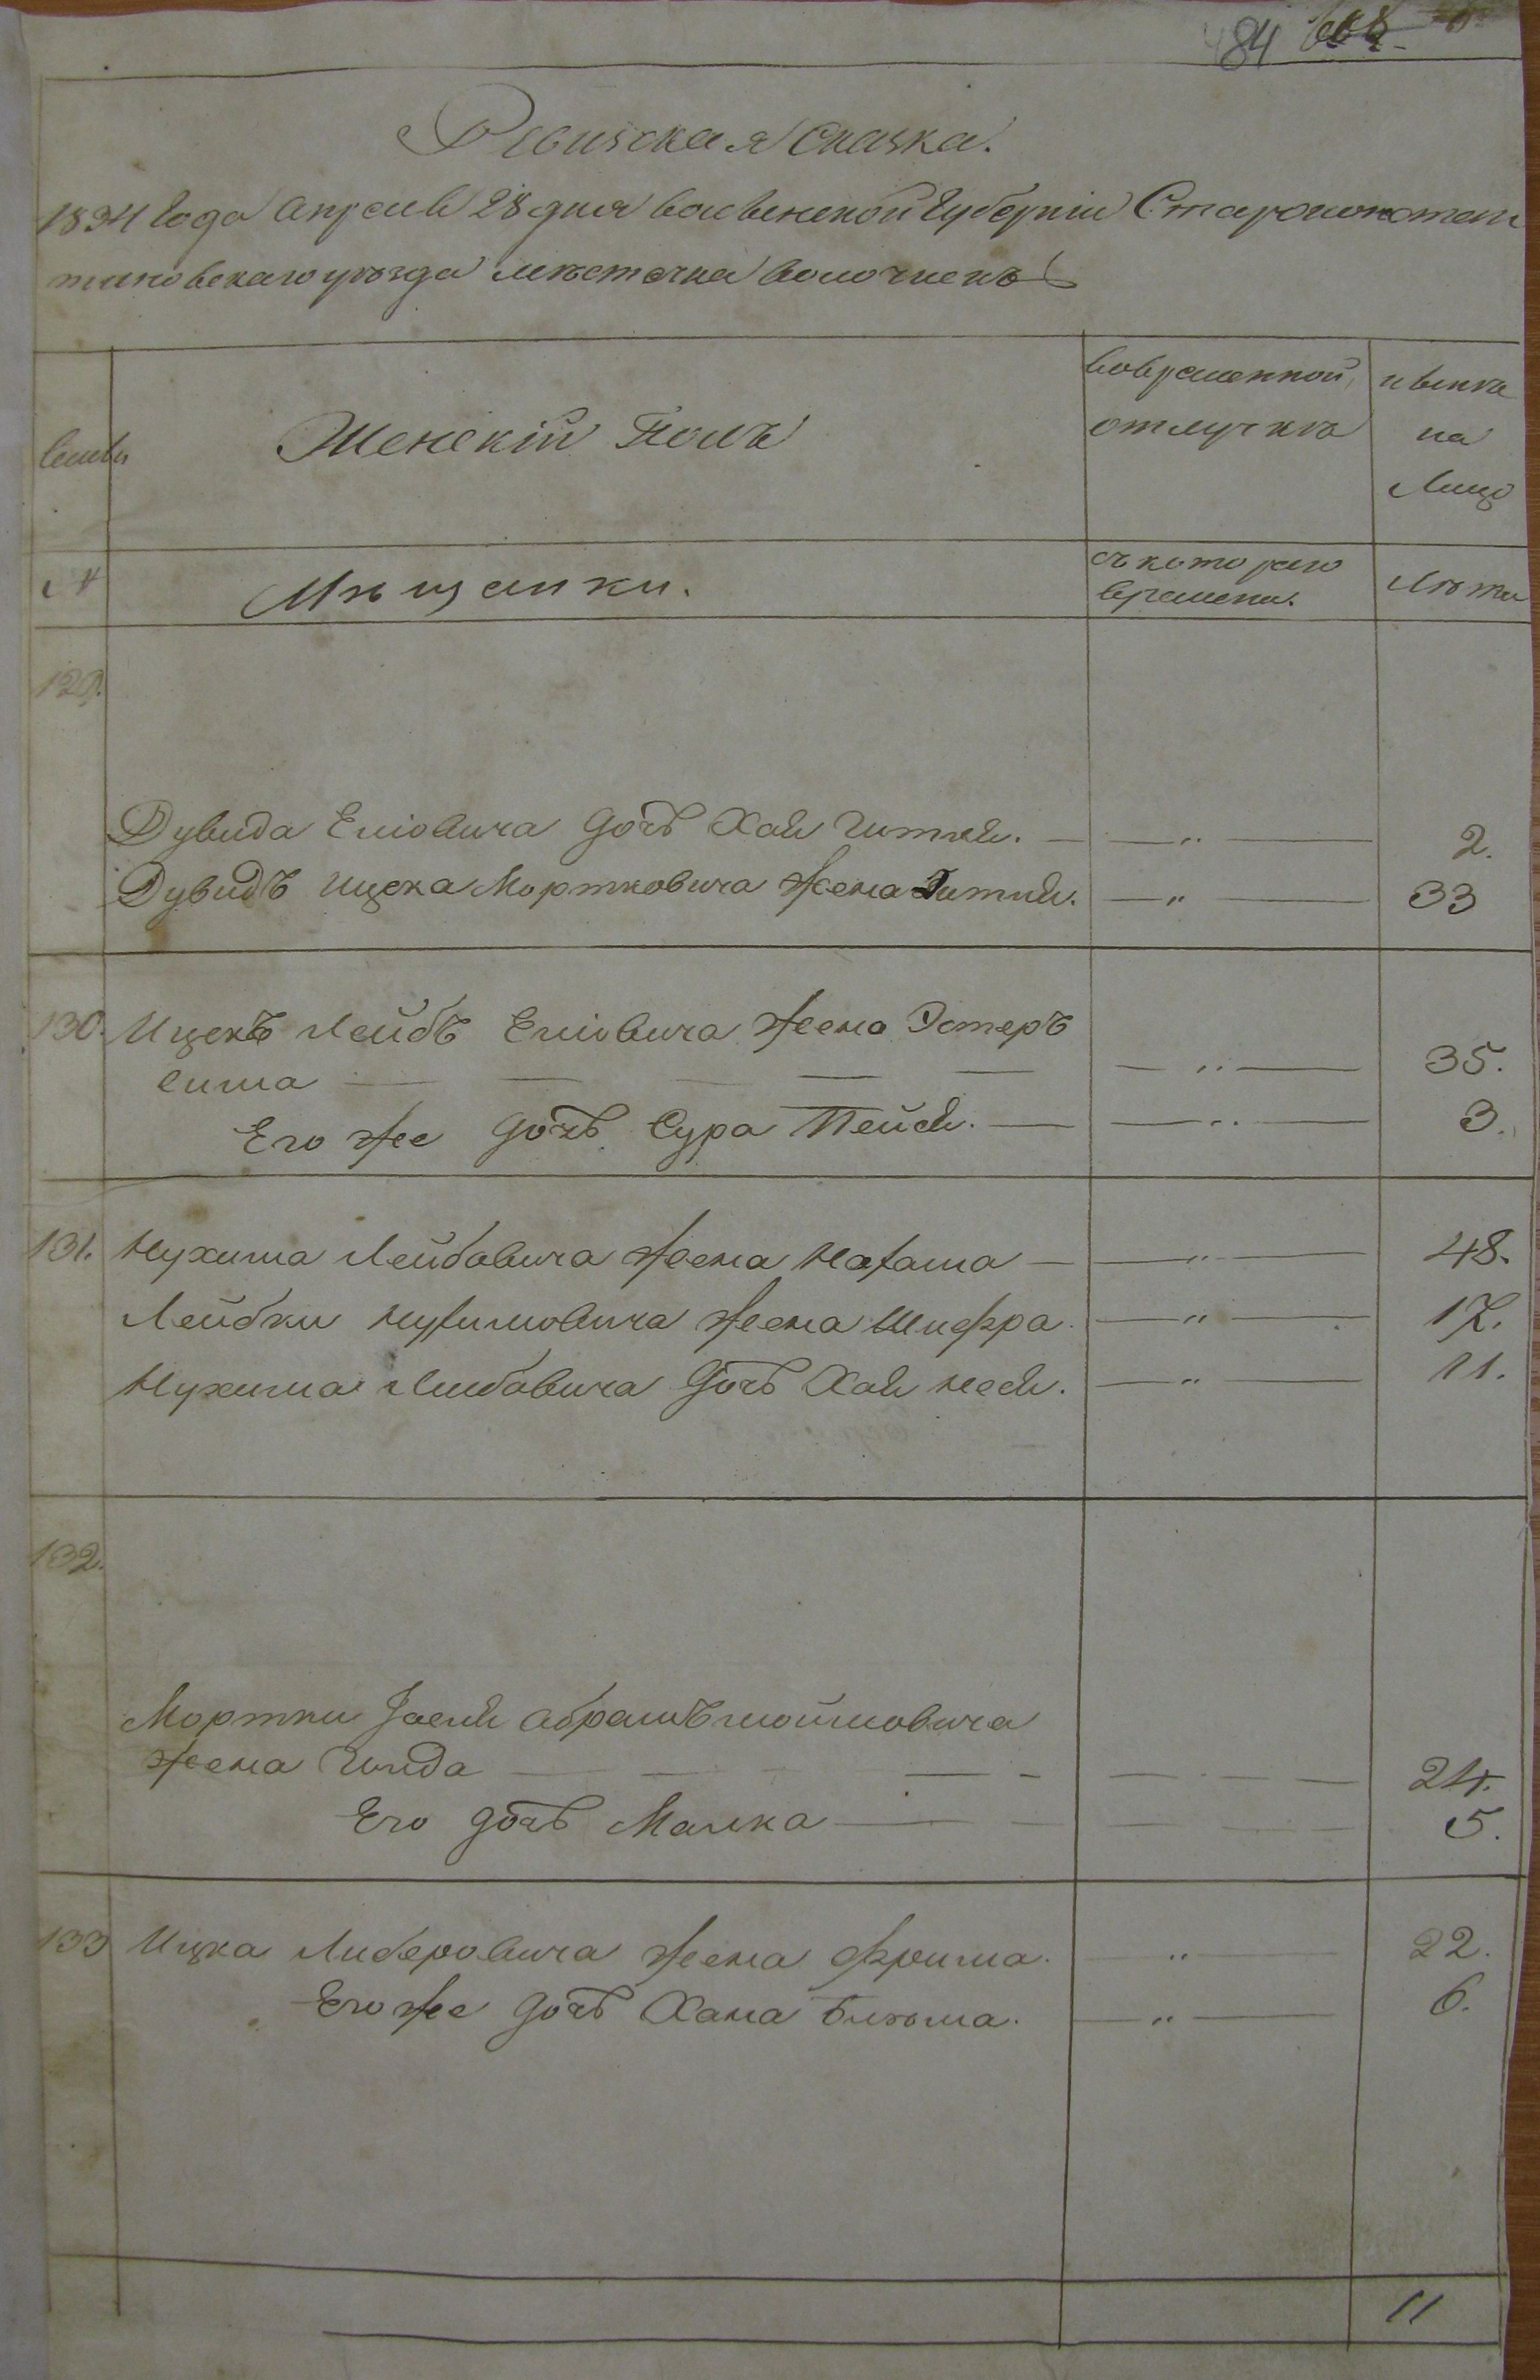 484
Ревизская Сказка.
1834 Года Апреля 28 дня Волынской Губернiи Староконстан
тиновскаго уезда местечка Волочискъ
Семьи
Женскiй Полъ
Вовременной
отлучке
ныне
на
Лицо
№
Мѣщанки.
съ котораго
времени.
Лѣта
129.
Дувида Елiовича дочь Хая Гитля. — — „ — 2.
Дувидъ Ицека Мортковича Жена Гитля. — „ — 33
130. Ицекъ Лейбъ Елiовича Жена Эстеръ
Сима — — — — — — „ — 35.
Его же дочь Сура Пейся. — — „ — 3.
131. Нухима Лейбовича Жена Нахама — — „ — 48.
Лейбки Нухимовича Жена Шифра. — „ — 17.
Нухима Лейбовича дочь Хая Неся. — „ — 11.
132.
Мортки Iосля Абрамъ Шоймовича
Жена Гинда — — — — — — 24.
Его дочь Малка — — — — — 5.
133 Ицка Либеровича Жена Фрима. — „ — 22.
Его же дочь Хана Блюма. — „ — 6.
11